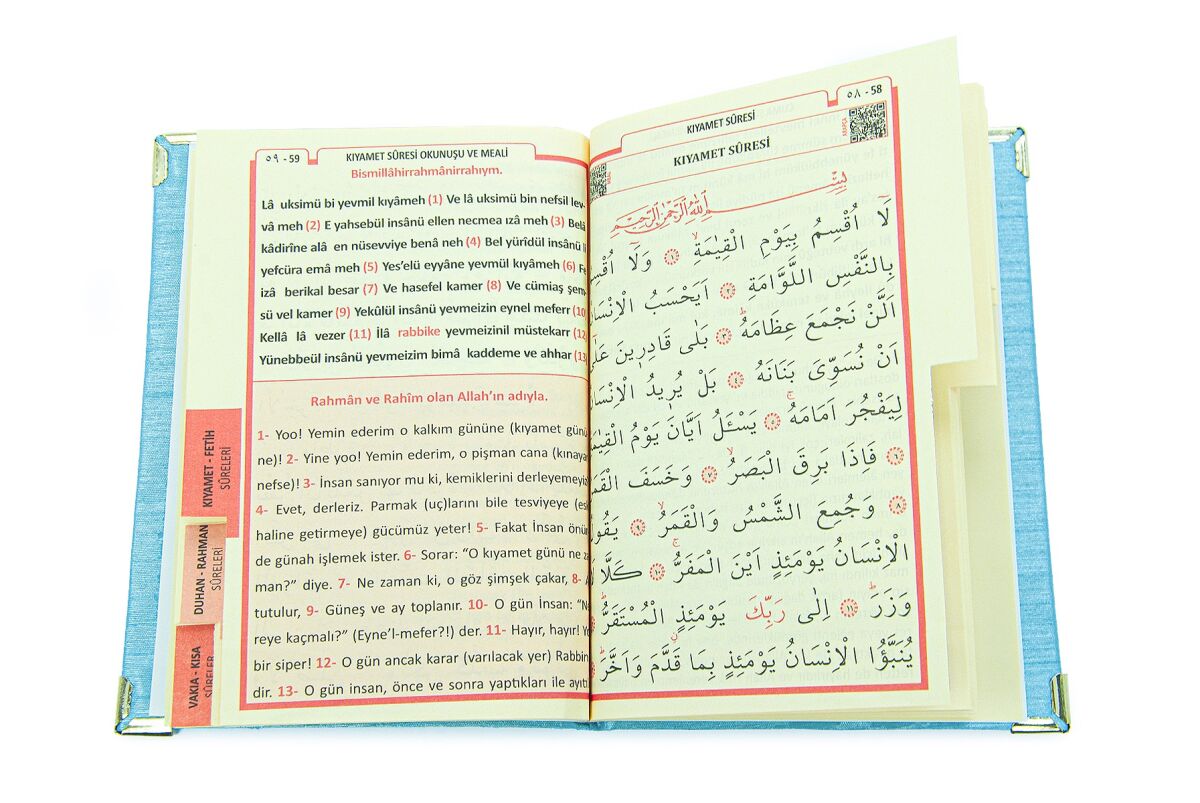 ٥٩ - 59
KIYAMET SÛRESİ OKUNUŞU VE MEALİ
Bismillâhirrahmânirrahıym.
Lâ uksimü bi yevmil kıyâmeh (1) Ve lâ uksimü bin nefsil lev-
vâ meh (2) E yahsebül insânü ellen necmea ızâ meh (3) Belâ
kâdirîne alâ en nüsevviye benâ neh (4) Bel yürîdül insânü li
yefcüra emâ meh (5) Yes'elü eyyâne yevmül kıyâmeh (6) Fe
izâ berikal besar (7) Ve hasefel kamer (8) Ve cümiaş şem-
sü vel kamer (9) Yekûlül insânü yevmeizin eynel meferr (10)
Kellâ lâ vezer (11) İlâ rabbike yevmeizinil müstekarr (12)
Yünebbeül insânü yevmeizim bimâ kaddeme ve ahhar (13)
Rahmân ve Rahîm olan Allah'ın adıyla.
1- Yoo! Yemin ederim o kalkım gününe (kıyamet günü
ne)! 2- Yine yoo! Yemin ederim, o pişman cana (kınaya
nefse)! 3- İnsan sanıyor mu ki, kemiklerini derleyemeyiz
4- Evet, derleriz. Parmak (uç)larını bile tesviyeye (es
haline getirmeye) gücümüz yeter! 5- Fakat İnsan önü
de günah işlemek ister. 6- Sorar: "O kıyamet günü ne za
man?" diye. 7- Ne zaman ki, o göz şimşek çakar, 8- A
tutulur, 9- Güneş ve ay toplanır. 10- O gün İnsan: "Ne
reye kaçmalı?" (Eyne'l-mefer?!) der. 11- Hayır, hayır! Yo
bir siper! 12- O gün ancak karar (varılacak yer) Rabbin
dir. 13- O gün insan, önce ve sonra yaptıkları ile ayıtı
KIYAMET - FETİH
SÛRELERİ
DUHAN - RAHMAN
SÛRELERİ
VAKIA - KISA
SÛRELER
٥٨ - 58
KIYAMET SÛRESİ
KIYAMET SÛRESİ
بِسْمِ اللّٰهِ الرَّحْمٰنِ الرَّح۪يمِ
لَٓا اُقْسِمُ بِيَوْمِ الْقِيٰمَةِۙ ﴿١﴾ وَلَٓا اُقْسِمُ
بِالنَّفْسِ اللَّوَّامَةِ ﴿٢﴾ اَيَحْسَبُ الْاِنْسَانُ
اَلَّنْ نَجْمَعَ عِظَامَهُۜ ﴿٣﴾ بَلٰى قَادِر۪ينَ عَلٰٓى
اَنْ نُسَوِّيَ بَنَانَهُ ﴿٤﴾ بَلْ يُر۪يدُ الْاِنْسَانُ
لِيَفْجُرَ اَمَامَهُۚ ﴿٥﴾ يَسْـَٔلُ اَيَّانَ يَوْمُ الْقِيٰمَةِ
﴿٦﴾ فَاِذَا بَرِقَ الْبَصَرُۙ ﴿٧﴾ وَخَسَفَ الْقَمَرُ
﴿٨﴾ وَجُمِعَ الشَّمْسُ وَالْقَمَرُۙ ﴿٩﴾ يَقُولُ
الْاِنْسَانُ يَوْمَئِذٍ اَيْنَ الْمَفَرُّۚ ﴿١٠﴾ كَلَّا لَا
وَزَرَۜ ﴿١١﴾ اِلٰى رَبِّكَ يَوْمَئِذٍۨ الْمُسْتَقَرُّۜ
يُنَبَّؤُا الْاِنْسَانُ يَوْمَئِذٍ بِمَا قَدَّمَ وَاَخَّرَۜ